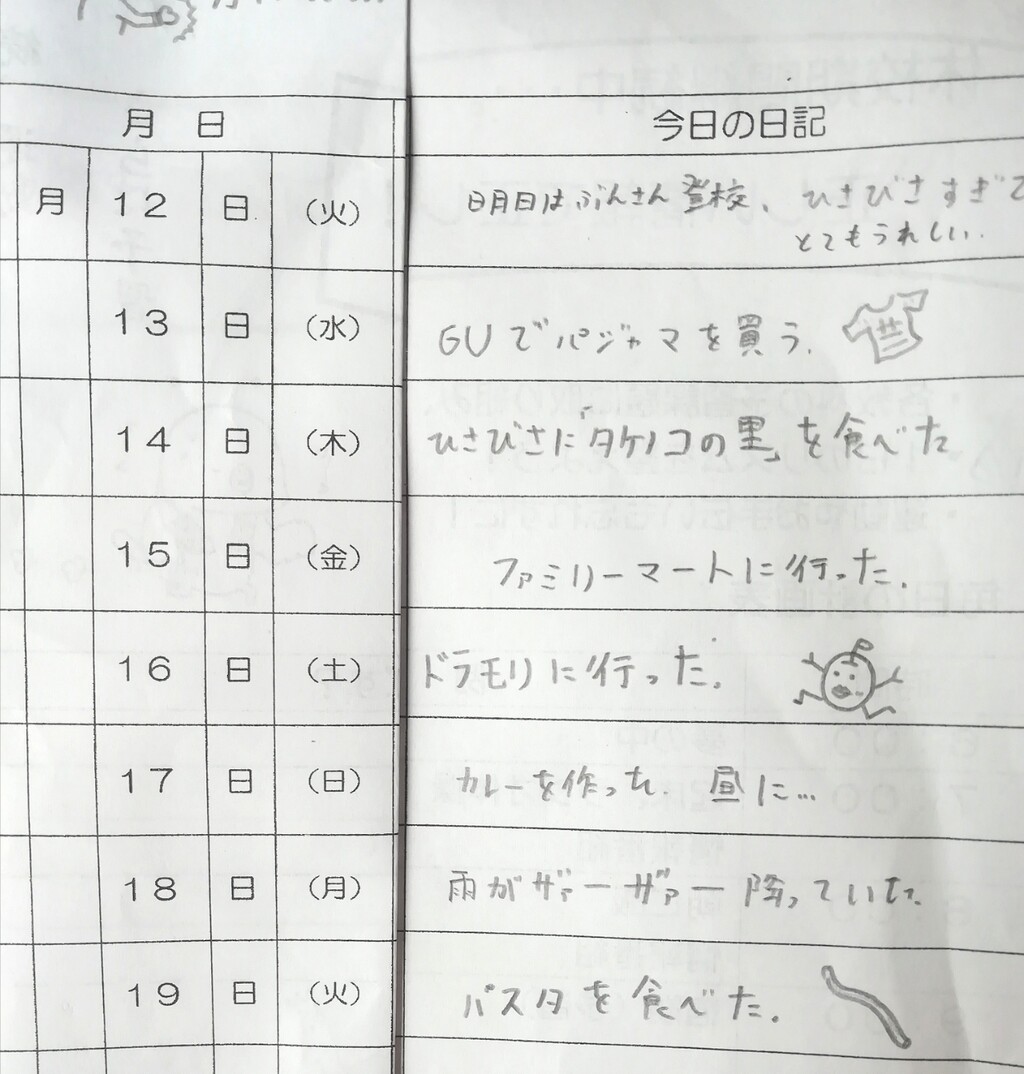 月 日 今日の日記
月 12 日 (火) 日月日はぶんさん登校、ひさびさすぎて
とてもうれしい.
13 日 (水) GUでパジャマを買う.
14 日 (木) ひさびさに「タケノコの里」を食べた
15 日 (金) ファミリーマートに行った.
16 日 (土) ドラモリに行った.
17 日 (日) カレーを作った. 昼に…
18 日 (月) 雨がザァーザァー降っていた.
19 日 (火) パスタを食べた.